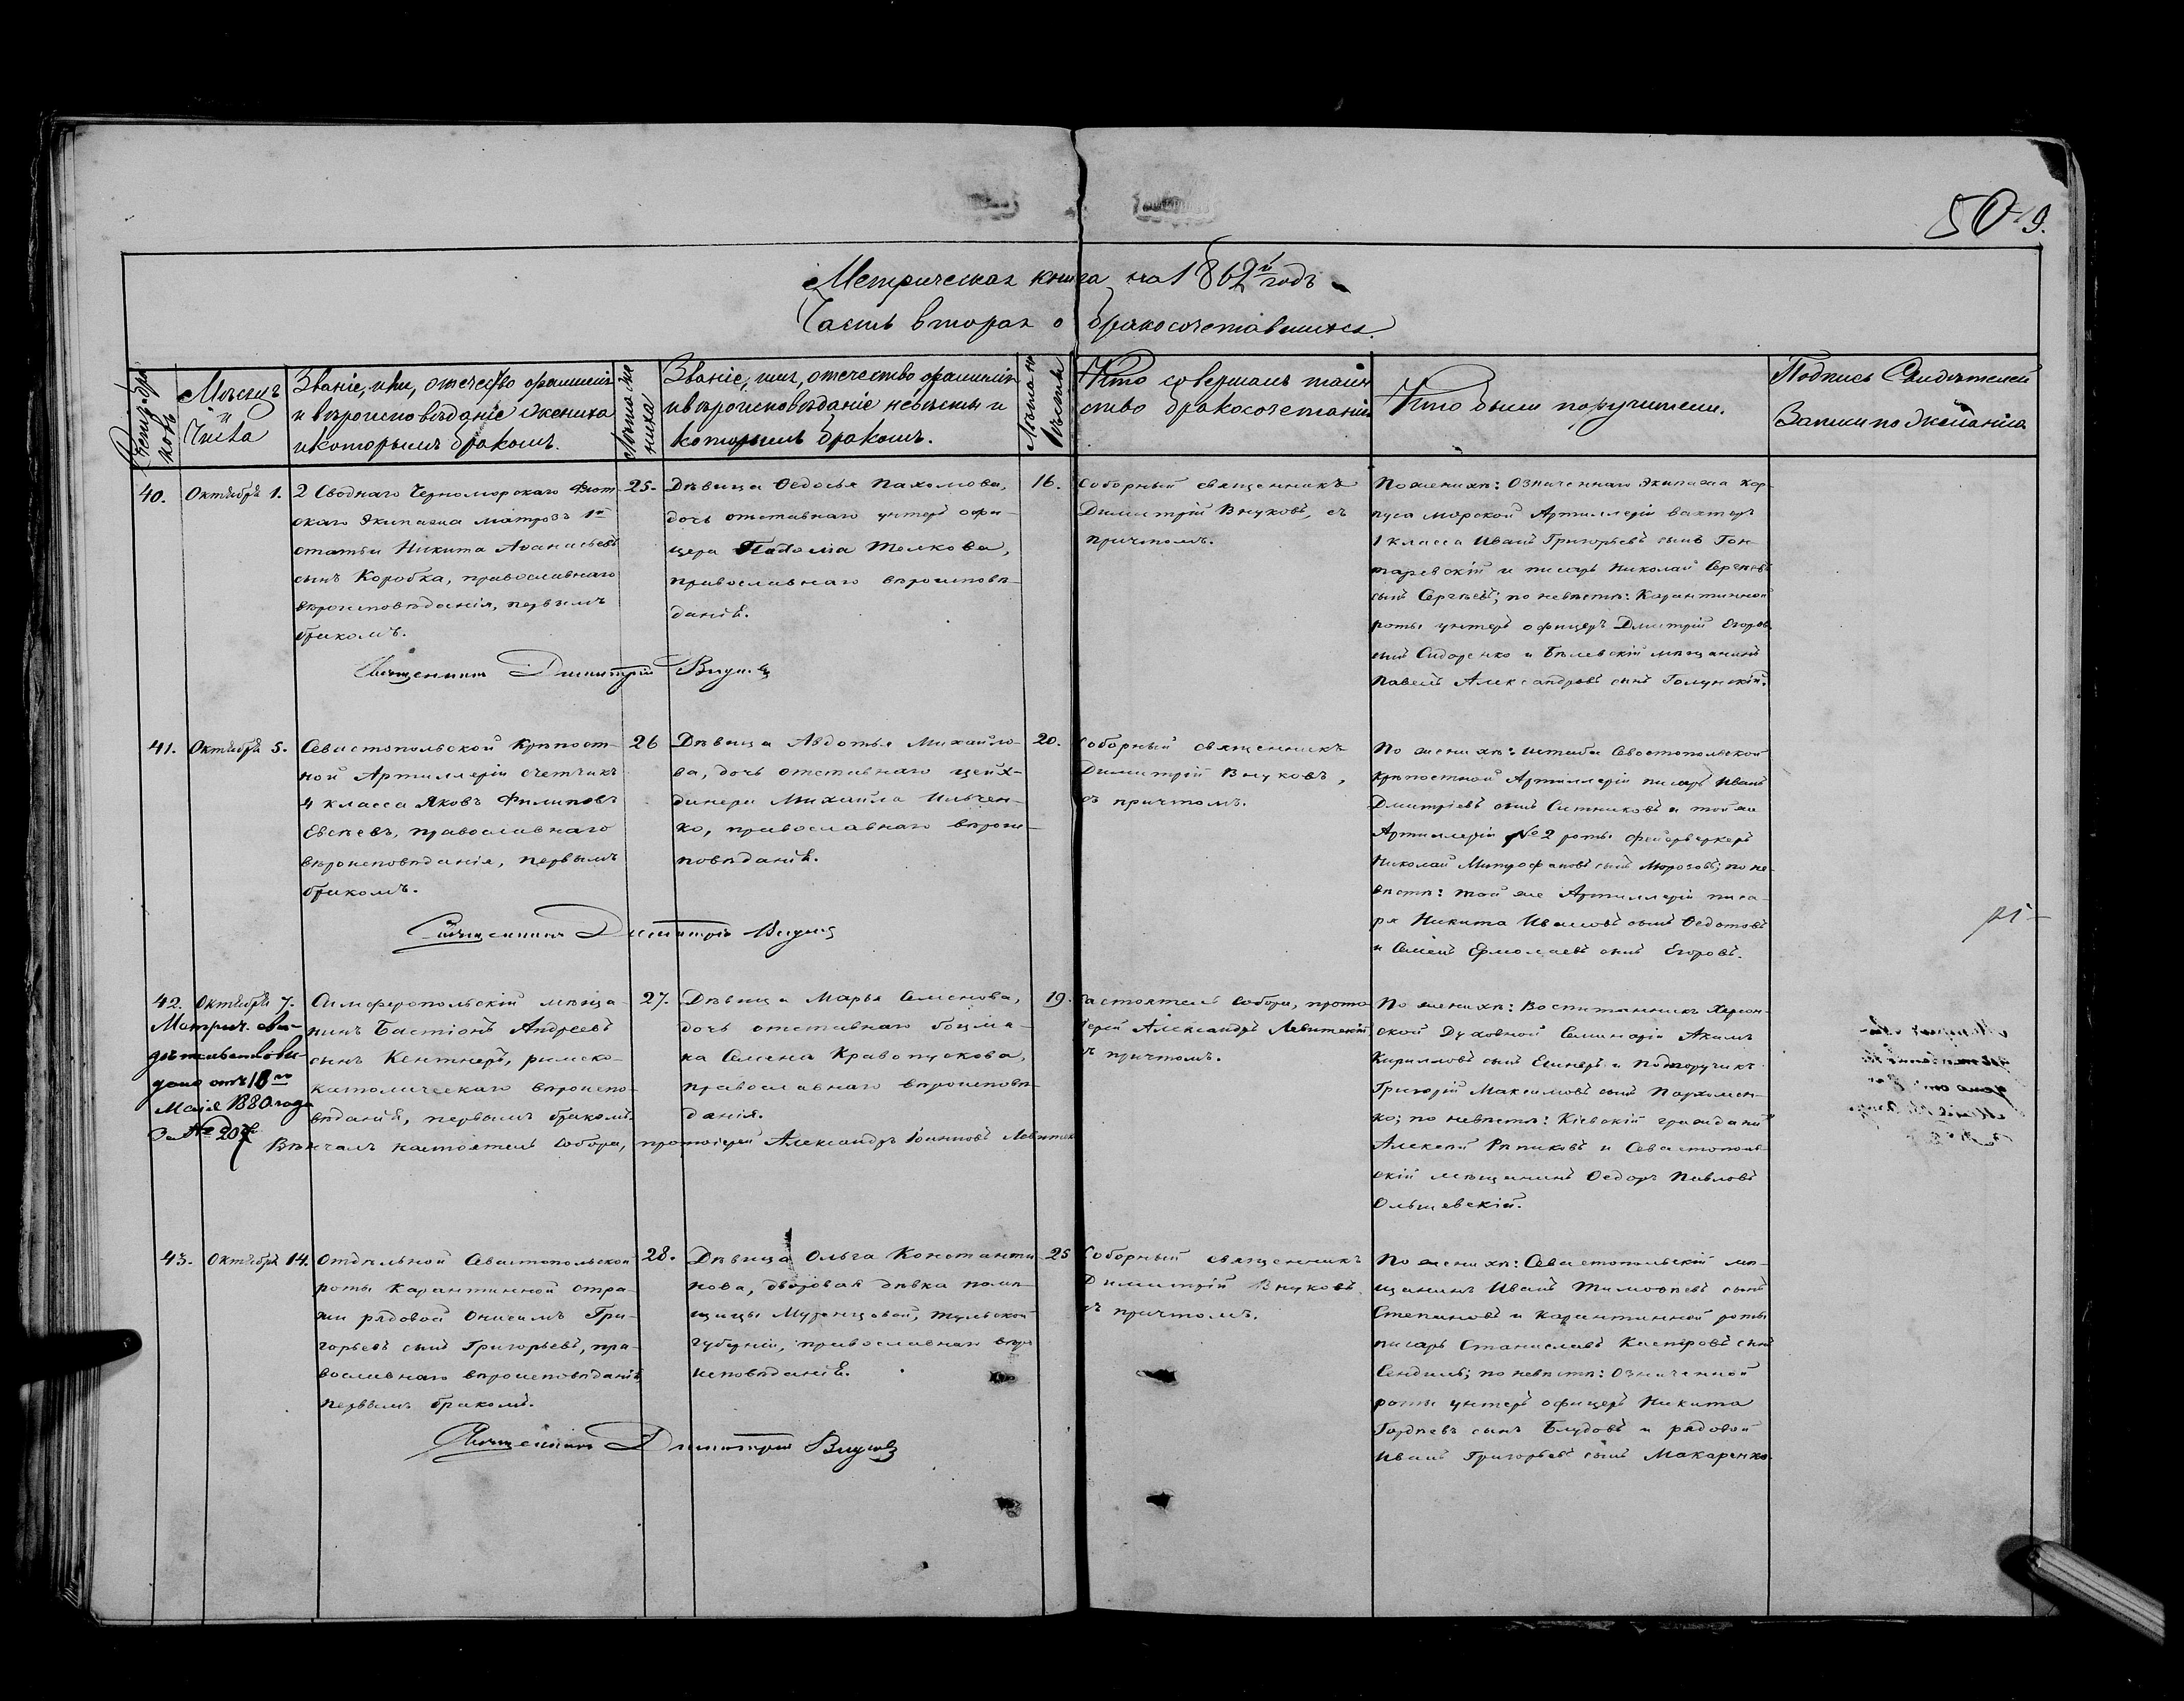 509.
Метрическая книга на 1862й годъ
Часть вторая о бракосочетавшихся.
Мѣсяцъ
и
Числа
Званіе, имя, отечество фамилія
и вѣроисповѣданіе жениха
и которымъ бракомъ.
Лѣта же
ниха
Званіе, имя, отечество фамилія
и вѣроисповѣданіе невѣсты и
которымъ бракомъ.
Лѣта не
вѣсты
Кто совершалъ таин
ство бракосочетанія
Кто были поручители.
Подпись Свидѣтелей
Записи по желанію
40.
Октября 1.
2 Своднаго Черноморскаго Флот-
скаго Экипажа матросъ 1й
статьи Никита Аѳанасьевъ
сынъ Коробка, православнаго
вѣроисповѣданія, первымъ
бракомъ.
25.
Дѣвица Ѳедосья Пахомова,
дочь отставнаго унтеръ офи-
цера Пахома Волкова,
православнаго вѣроисповѣ-
данія.
16.
Соборный священникъ
Димитрій Внуковъ, съ
причтомъ.
По женихѣ: Означеннаго Экипажа кор-
пуса морской Артиллеріи вахтеръ
1 класса Иванъ Григорьевъ сынъ Гон-
таревскій и писарь Николай Сергѣевъ
сынъ Сергѣевъ; по невѣстѣ: Карантинной
роты унтеръ офицеръ Дмитрій Егоровъ
сынъ Сидоренко и Бѣлевскій мѣщанинъ
Павелъ Александровъ сынъ Голунскій.
Священникъ Димитрій Внуковъ
41.
Октября 5.
Севастопольской Крѣпост-
ной Артиллеріи счетчикъ
4 класса Яковъ Филиповъ
Евсѣевъ, православнаго
вѣроисповѣданія, первымъ
бракомъ.
26
Дѣвица Авдотья Михайло-
ва, дочь отставнаго цейх-
динера Михайла Ильчен-
ко, православнаго вѣроис-
повѣданія.
20.
Соборный священникъ
Димитрій Внуковъ,
съ причтомъ.
По женихѣ: штаба Севастопольской
крѣпостной Артиллеріи писарь Иванъ
Дмитріевъ сынъ Ситниковъ и той же
Артиллеріи №2 роты фейерверкеръ
Николай Митрофановъ сынъ Морозовъ; по не-
вѣстѣ: той же Артиллеріи писа-
ря Никита Ивановъ сынъ Ѳедотовъ
и Семенъ Ермолаевъ сынъ Егоровъ.
Священникъ Димитрій Внуковъ
42.
Октября 7.
Метрич. сви-
дѣтельство вы-
дано отъ 18го
Мая 1880 года
За № 207
Симферопольскій мѣща-
нинъ Бастіонъ Андреевъ
сынъ Кентнеръ, римско-
католическаго вѣроиспо-
вѣданія, первымъ бракомъ.
27.
Дѣвица Марья Семенова,
дочь отставнаго боцма-
на Семена Кравопускова,
православнаго вѣроисповѣ-
данія.
19.
Настоятель собора, прото
іерей Александръ Левитскій
съ причтомъ.
По женихѣ: Воспитанникъ Херсон-
ской Духовной Семинаріи Акимъ
Кирилловъ сынъ и Подпоручикъ
Григорій Максимовъ сынъ Пархомен-
ко; по невѣстѣ: Кіевскій гражданинъ
Алексѣй Рѣпиковъ и Севастополь-
скій мѣщанинъ Ѳедоръ Павловъ
Ольшевскій.
Вѣнчалъ настоятель собора, протоіерей Александръ Іоанновъ Левитск
43.
Октября 14.
Отдѣльной Севастопольской
роты карантинной стра-
жи рядовой Онисимъ Гри-
горьевъ сынъ Григорьевъ, пра-
вославнаго вѣроисповѣданія,
первымъ бракомъ.
28.
Дѣвица Ольга Константи
нова, дворовая дѣвка помѣ-
щицы Муранцовой, Тульской
губерніи, православнаго вѣро
исповѣданія.
25
Соборный священникъ
Димитрій Внуковъ
съ причтомъ.
По женихѣ: Севастопольскій мѣ-
щанинъ Иванъ Тимоѳеевъ сынъ
Степановъ и карантинной роты
писарь Станиславъ Каспровъ сынъ
Сендиль; по невѣстѣ: Означенной
роты унтеръ офицеръ Никита
Гордѣевъ сынъ Блудовъ и рядовой
Иванъ Григорьевъ сынъ Макаренко.
Священникъ Димитрій Внуковъ